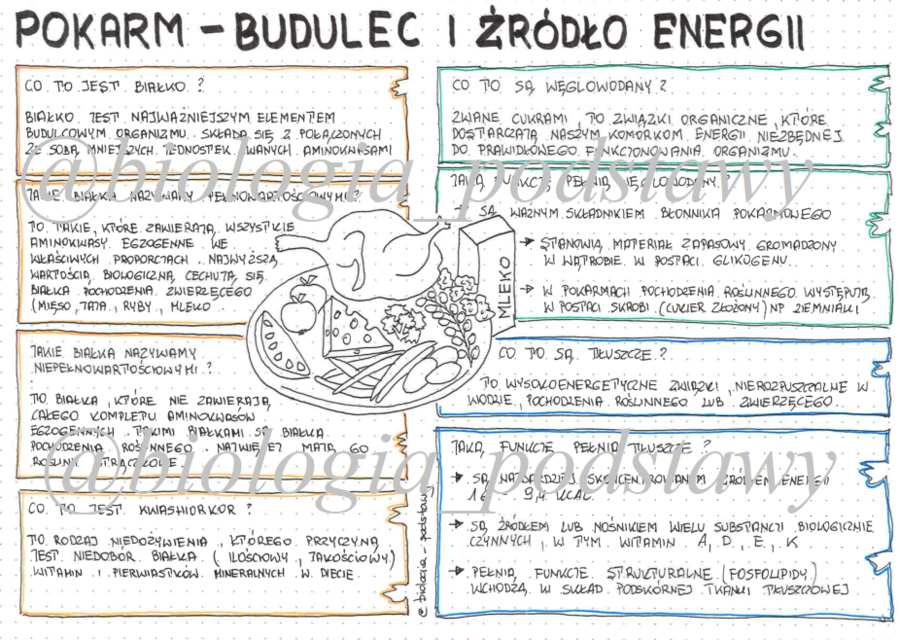 POKARM – BUDULEC I ŹRÓDŁO ENERGII
CO TO JEST BIAŁKO ?
BIAŁKO JEST NAJWAŻNIEJSZYM ELEMENTEM
BUDULCOWYM ORGANIZMU. SKŁADA SIĘ Z POŁĄCZONYCH
ZE SOBĄ MNIEJSZYCH JEDNOSTEK ZWANYCH AMINOKWASAMI
JAKIE BIAŁKA NAZYWAMY PEŁNOWARTOŚCIOWYMI ?
TO TAKIE, KTÓRE ZAWIERAJĄ WSZYSTKIE
AMINOKWASY EGZOGENNE WE
WŁAŚCIWYCH PROPORCJACH . NAJWYŻSZĄ
WARTOŚCIĄ BIOLOGICZNĄ CECHUJĄ SIĘ
BIAŁKA POCHODZENIA ZWIERZĘCEGO
(MIĘSO, JAJA , RYBY , MLEKO
JAKIE BIAŁKA NAZYWAMY
NIEPEŁNOWARTOŚCIOWYMI ?
TO BIAŁKA , KTÓRE NIE ZAWIERAJĄ
CAŁEGO KOMPLETU AMINOKWASÓW
EGZOGENNYCH . TAKIMI BIAŁKAMI SĄ BIAŁKA
POCHODZENIA ROŚLINNEGO . NAJWIĘCEJ MAJĄ GO
ROŚLINY STRĄCZKOWE .
CO TO JEST KWASHIORKOR ?
TO RODZAJ NIEDOŻYWIENIA , KTÓREGO PRZYCZYNĄ
JEST NIEDOBÓR BIAŁKA ( ILOŚCIOWY , JAKOŚCIOWY)
WITAMIN I PIERWIASTKÓW MINERALNYCH W DIECIE .
CO TO SĄ WĘGLOWODANY ?
ZWANE CUKRAMI , TO ZWIĄZKI ORGANICZNE , KTÓRE
DOSTARCZAJĄ NASZYM KOMÓRKOM ENERGII NIEZBĘDNEJ
DO PRAWIDŁOWEGO FUNKCJONOWANIA ORGANIZMU .
JAKĄ FUNKCJĘ PEŁNIĄ WĘGLOWODANY ?
→ SĄ WAŻNYM SKŁADNIKIEM BŁONNIKA POKARMOWEGO
→ STANOWIĄ MATERIAŁ ZAPASOWY GROMADZONY
W WĄTROBIE W POSTACI GLIKOGENU .
→ W POKARMACH POCHODZENIA ROŚLINNEGO WYSTĘPUJĄ
W POSTACI SKROBI (CUKIER ZŁOŻONY) NP ZIEMNIAKI
MLEKO
CO TO SĄ TŁUSZCZE ?
TO WYSOKOENERGETYCZNE ZWIĄZKI , NIEROZPUSZCZALNE W
WODZIE , POCHODZENIA ROŚLINNEGO LUB ZWIERZĘCEGO .
JAKĄ FUNKCJĘ PEŁNIĄ TŁUSZCZE ?
→ SĄ NAJBARDZIEJ SKONCENTROWANYM ŹRÓDŁEM ENERGII
1G - 9,4 KCAL
→ SĄ ŹRÓDŁEM LUB NOŚNIKIEM WIELU SUBSTANCJI BIOLOGICZNIE
CZYNNYCH , W TYM WITAMIN A , D , E , K
→ PEŁNIĄ FUNKCJE STRUKTURALNE (FOSFOLIPIDY)
WCHODZĄ W SKŁAD PODSKÓRNEJ TKANKI TŁUSZCZOWEJ
@biologia_podstawy
@biologia_podstawy
@ biologia - podstawy